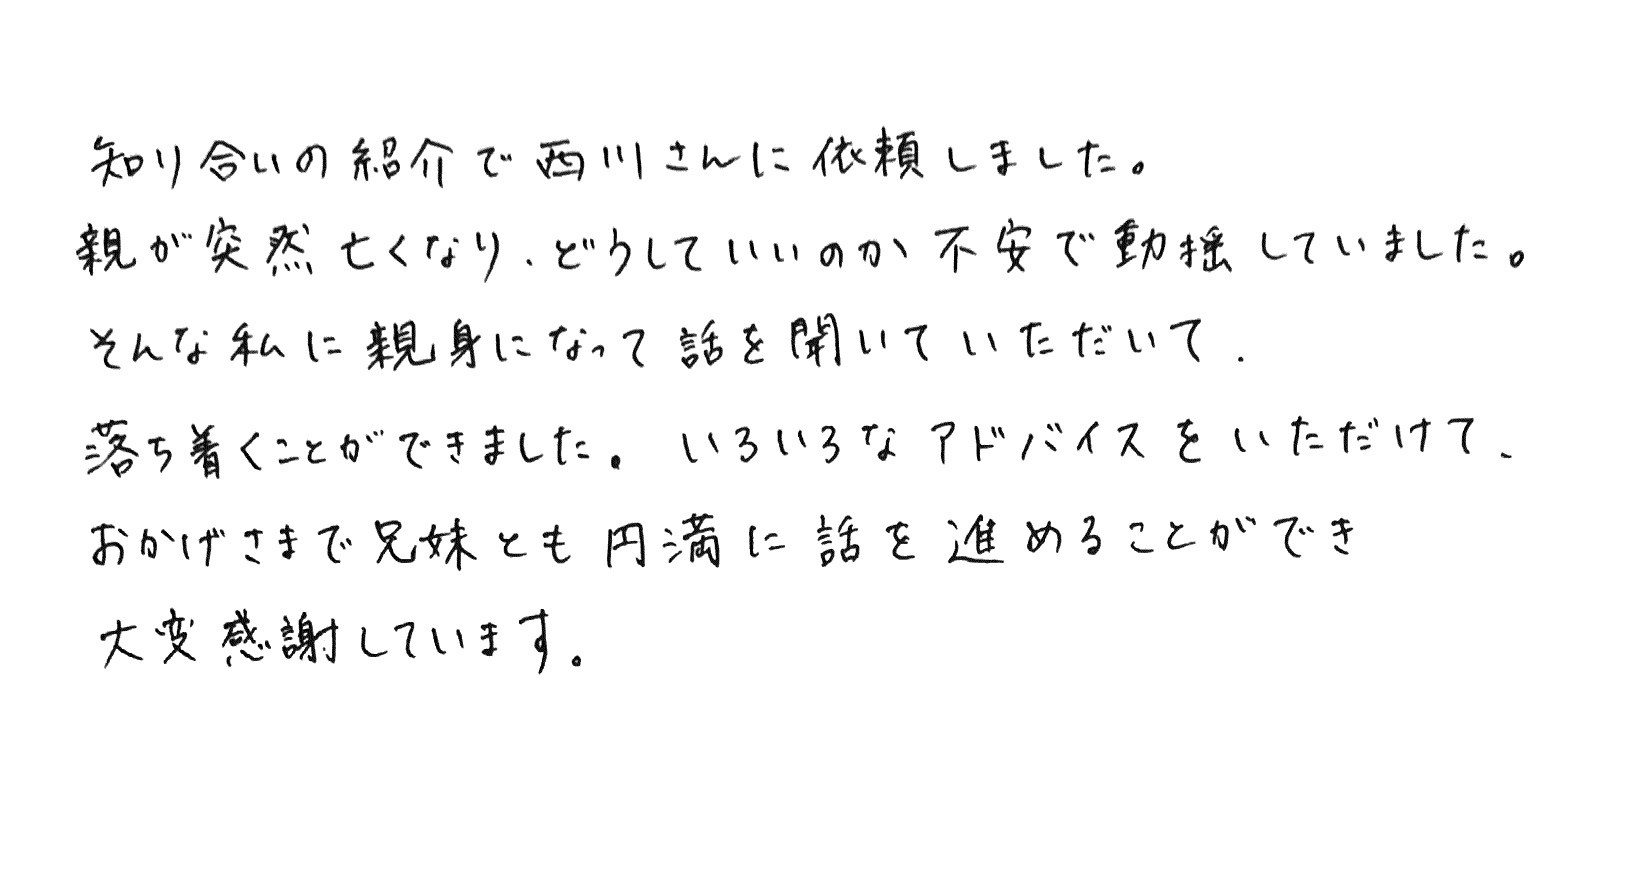 知り合いの紹介で西川さんに依頼しました。
親が突然亡くなり、どうしていいのか不安で動揺していました。
そんな私に親身になって話を聞いていただいて、
落ち着くことができました。いろいろなアドバイスをいただけて、
おかげさまで兄妹とも円満に話を進めることができ
大変感謝しています。